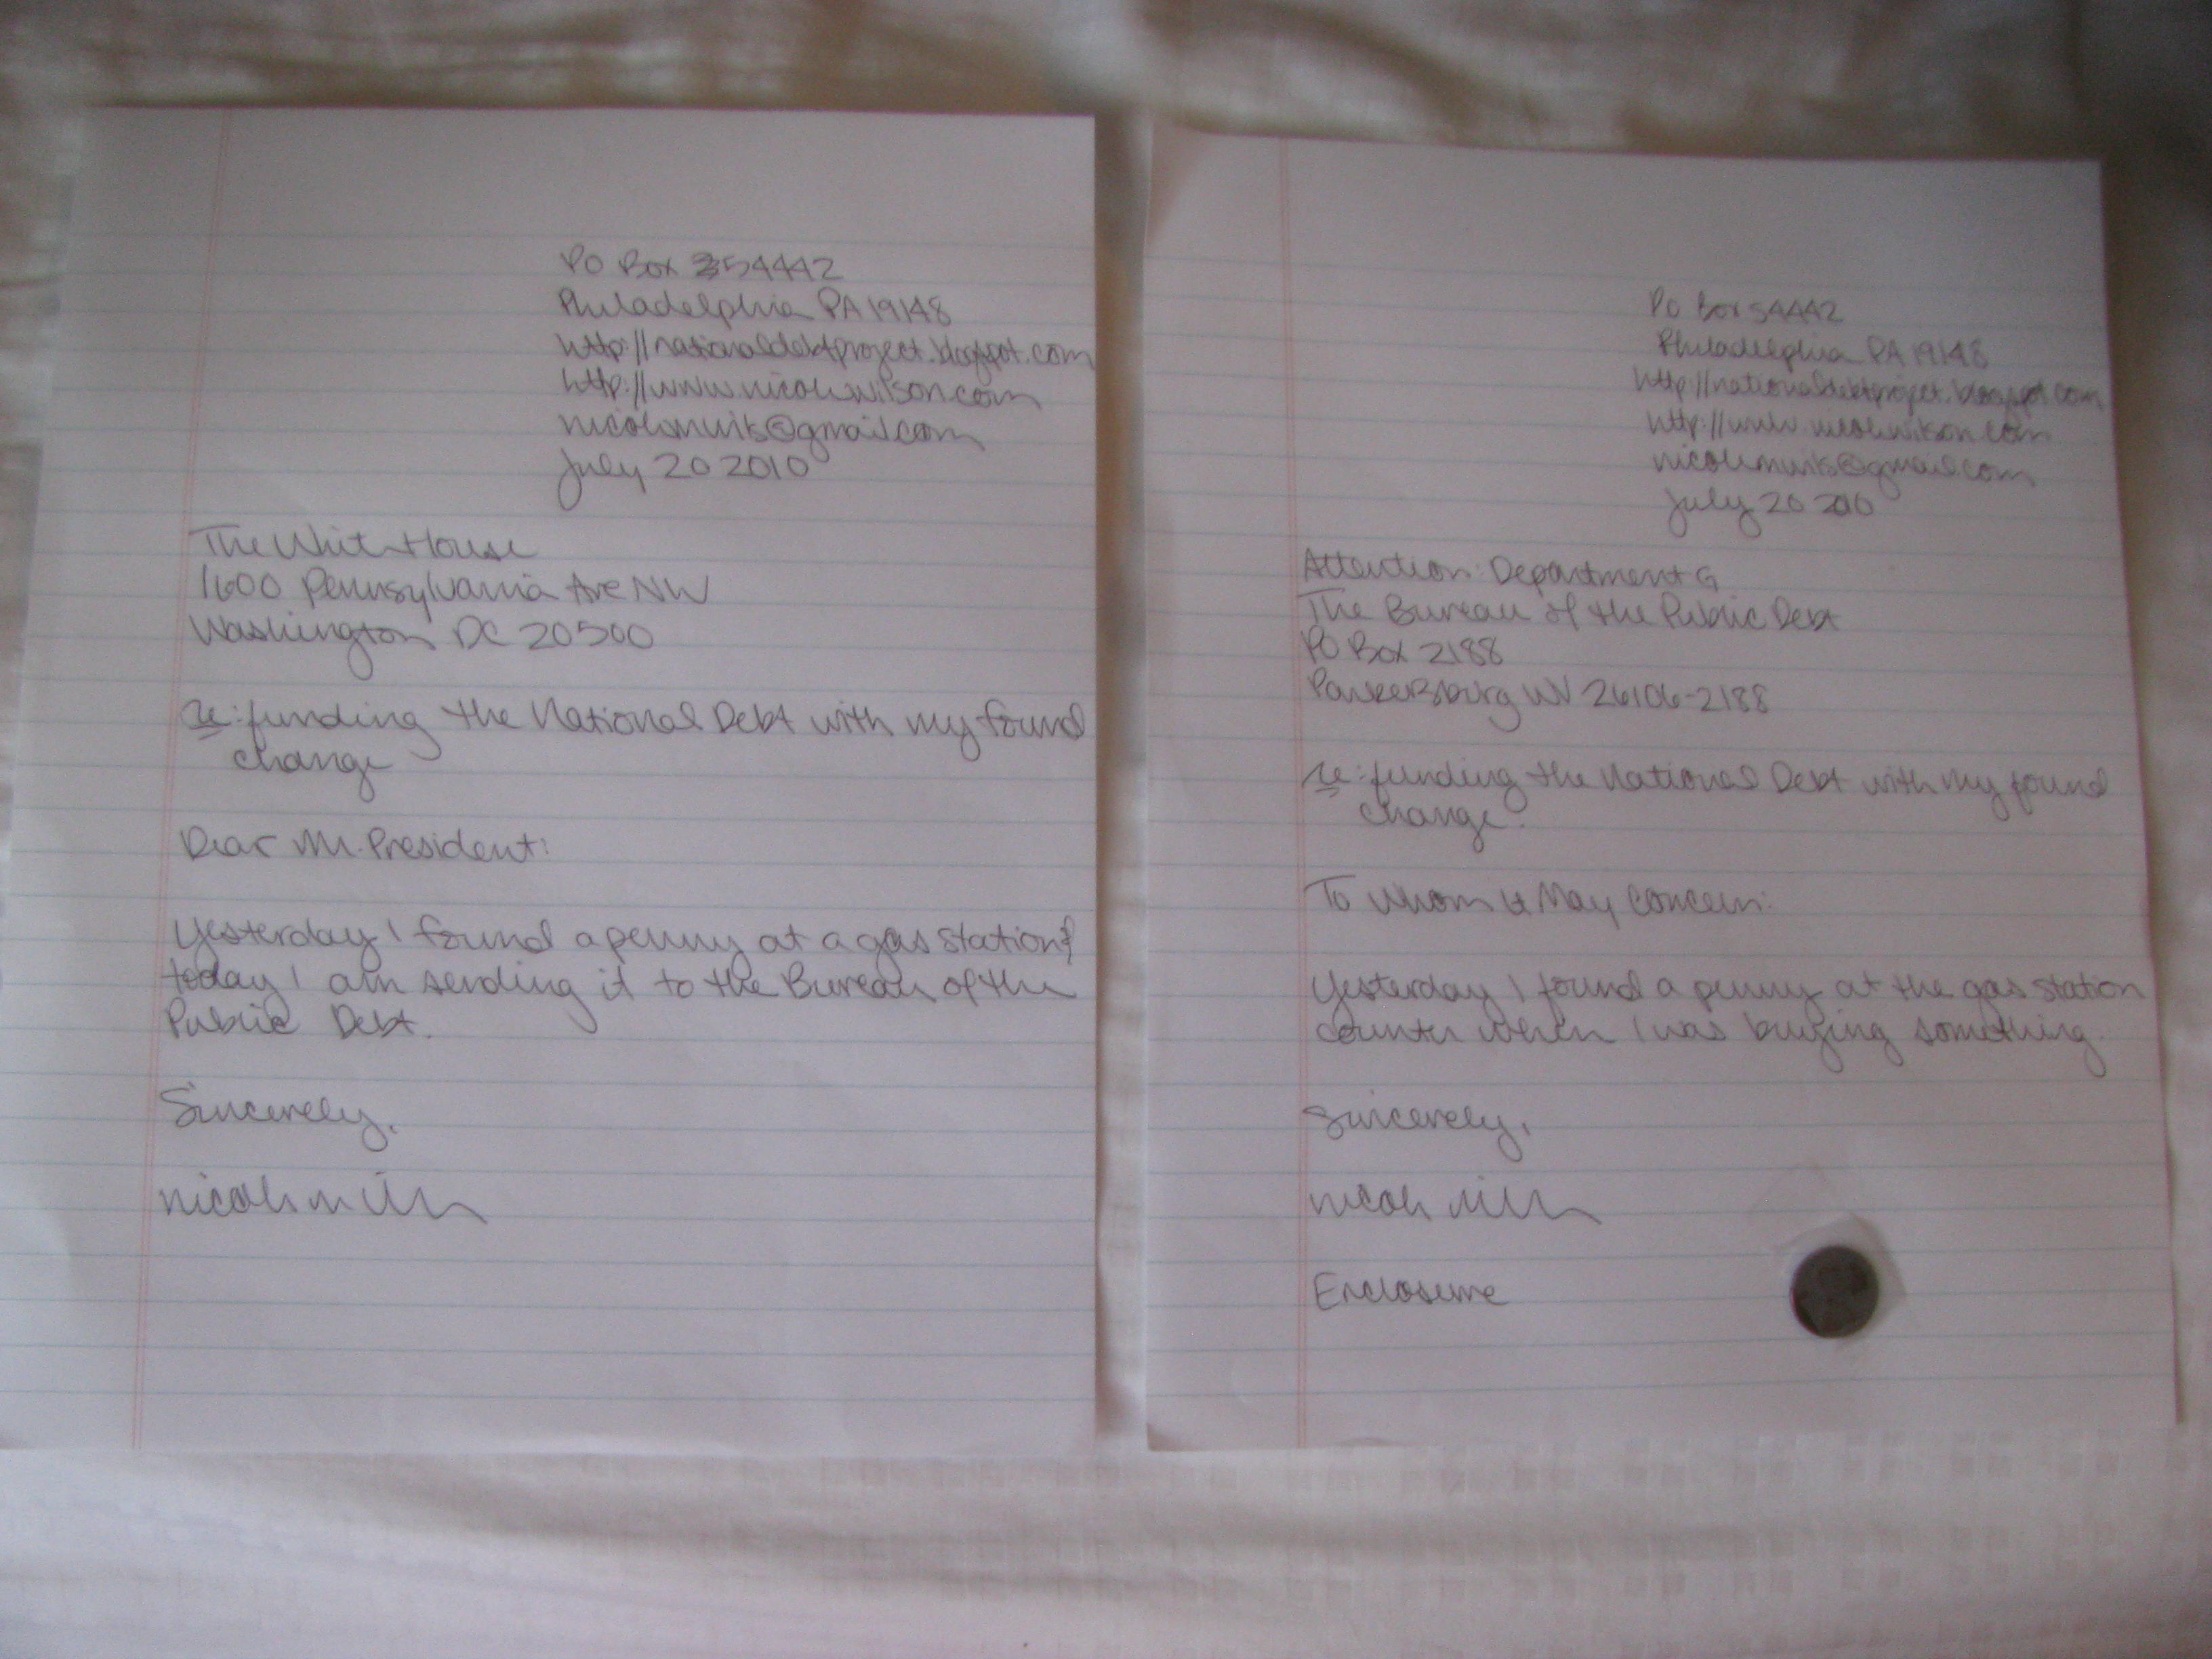 PO Box 54442
Philadelphia PA 19148
http://nationaldebtproject.blogspot.com
http://www.nicolewilson.com
@gmail.com
July 20 2010
The White House
1600 Pennsylvania Ave NW
Washington DC 20500
re: funding the National Debt with my found
change
Dear Mr. President:
Yesterday I found a penny at a gas station &
today I am sending it to the Bureau of the
Public Debt.
Sincerely,
nicole wilson
PO Box 54442
Philadelphia PA 19148
http://nationaldebtproject.blogspot.com
http://www.nicolewilson.com
@gmail.com
July 20 2010
Attention: Department G
The Bureau of the Public Debt
PO Box 2188
Parkersburg WV 26106-2188
re: funding the National Debt with my found
change.
To Whom it May Concern:
Yesterday I found a penny at the gas station
counter when I was buying something.
Sincerely,
nicole wilson
Enclosure